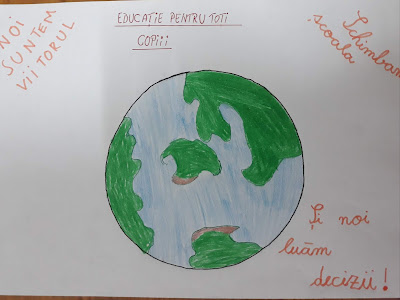 NOI
SUNTEM
VIITORUL
EDUCAȚIE PENTRU TOȚI
COPIII
Schimbăm
școala
Și noi
luăm
decizii!